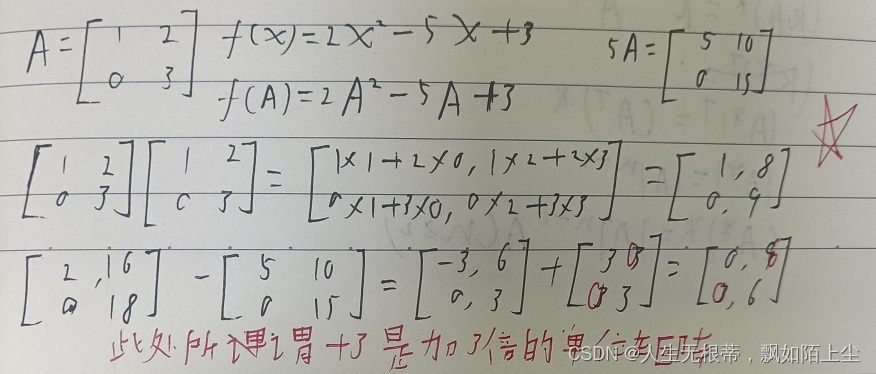 A = [1 2 0 3] f(x) = 2x² - 5x + 3 5A = [5 10 0 15]
f(A) = 2A² - 5A + 3
[1 2 0 3] [1 2 0 3] = [1×1+2×0, 1×2+2×3 0×1+3×0, 0×2+3×3] = [1, 8 0, 9]
[2, 16 0 18] - [5 10 0 15] = [-3, 6 0, 3] + [3 0 0 3] = [0, 6 0, 6]
此处所谓 +3 是加3倍的单位矩阵
CSDN @人生无根蒂，飘如陌上尘